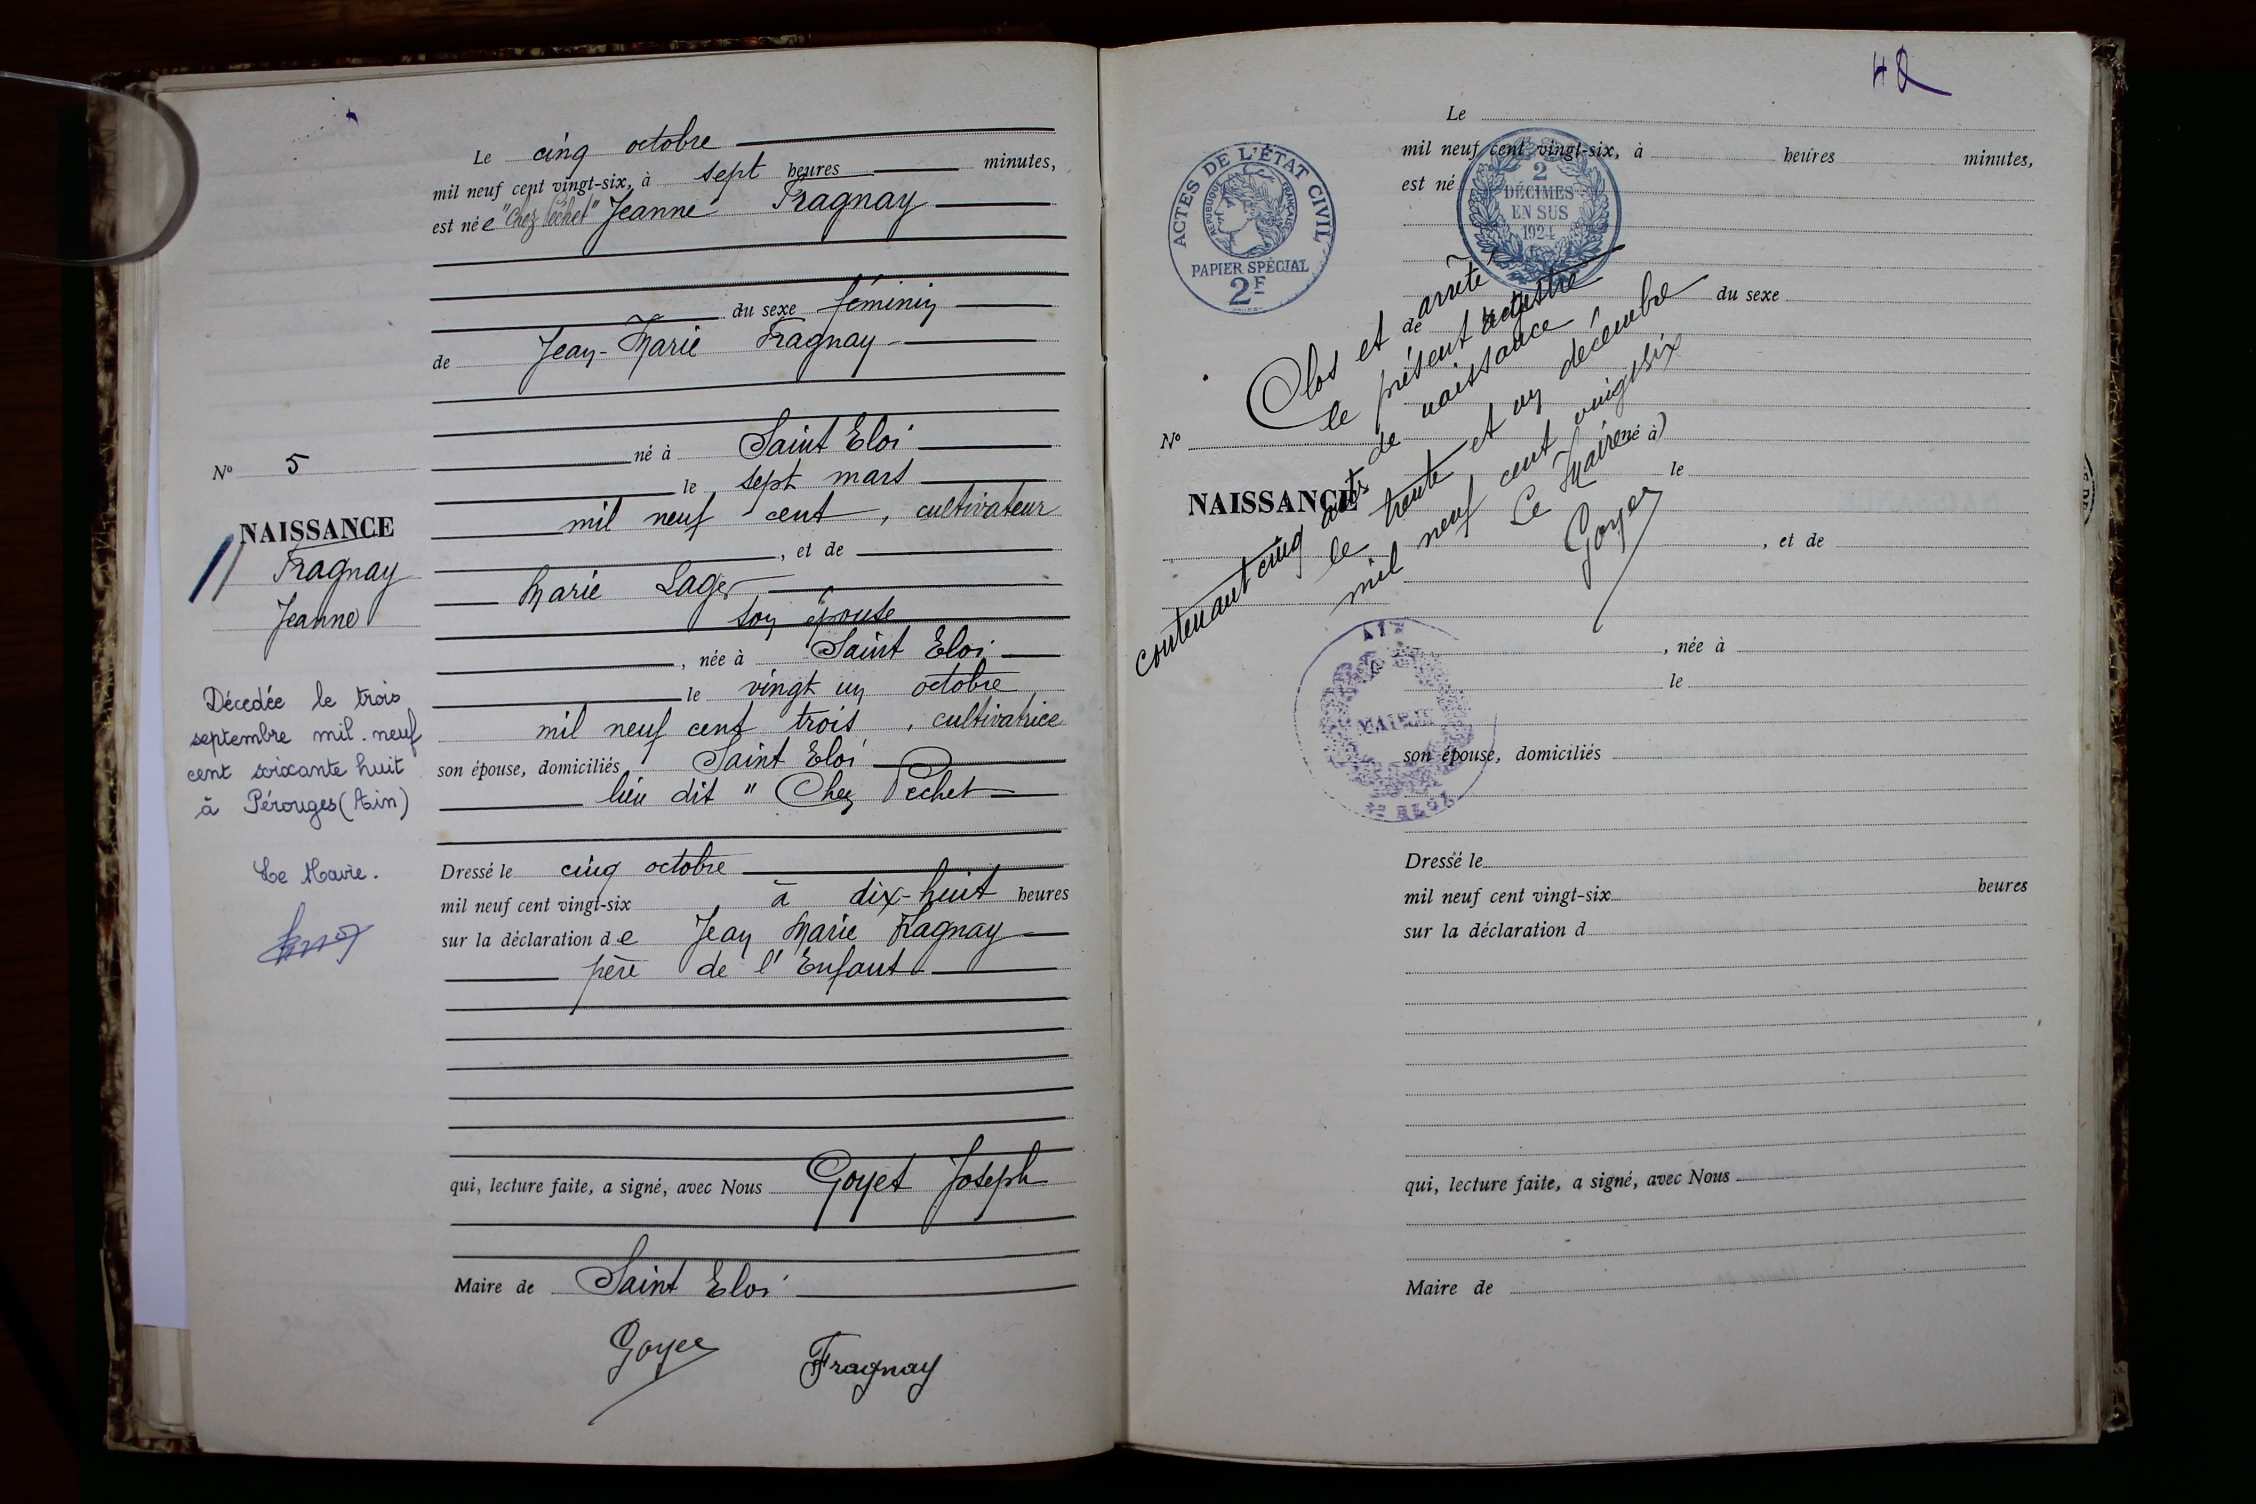 Le cinq octobre
mil neuf cent vingt-six, à sept heures minutes,
est née "Chez Pechet" Jeanne Fragnay
du sexe féminin
de Jean-Marie Fragnay
né à Saint Eloi
le sept mars
mil neuf cent, cultivateur
, et de
Marie Lager
son épouse
, née à Saint Eloi
le vingt un octobre
mil neuf cent trois, cultivatrice
son épouse, domiciliés Saint Eloi
lieu dit " Chez Pechet
Dressé le cinq octobre
mil neuf cent vingt-six à dix-huit heures
sur la déclaration de Jean Marie Fragnay
père de l'Enfant
qui, lecture faite, a signé, avec Nous Goyet Joseph
Maire de Saint Eloi
Goyet
Fragnay
N° 5
NAISSANCE
Fragnay
Jeanne
Décedée le trois
septembre mil. neuf
cent soixante huit
à Pérouges (Ain)
Le Maire.
Le
mil neuf cent vingt-six, à heures minutes,
est né
du sexe
de
né à
le
, et de
, née à
le
son épouse, domiciliés
Dressé le
mil neuf cent vingt-six heures
sur la déclaration d
qui, lecture faite, a signé, avec Nous
Maire de
N°
NAISSANCE
ACTES DE L'ÉTAT CIVIL
RÉPUBLIQUE FRANÇAISE
PAPIER SPÉCIAL
2F
2
DÉCIMES
EN SUS
1924
Clos et arrêté
le présent registre
de naissance
contenant cinq actes
le trente et un décembre
mil neuf cent vingt six
Le Maire
Goyet
AIN
MAIRIE
St ELOI